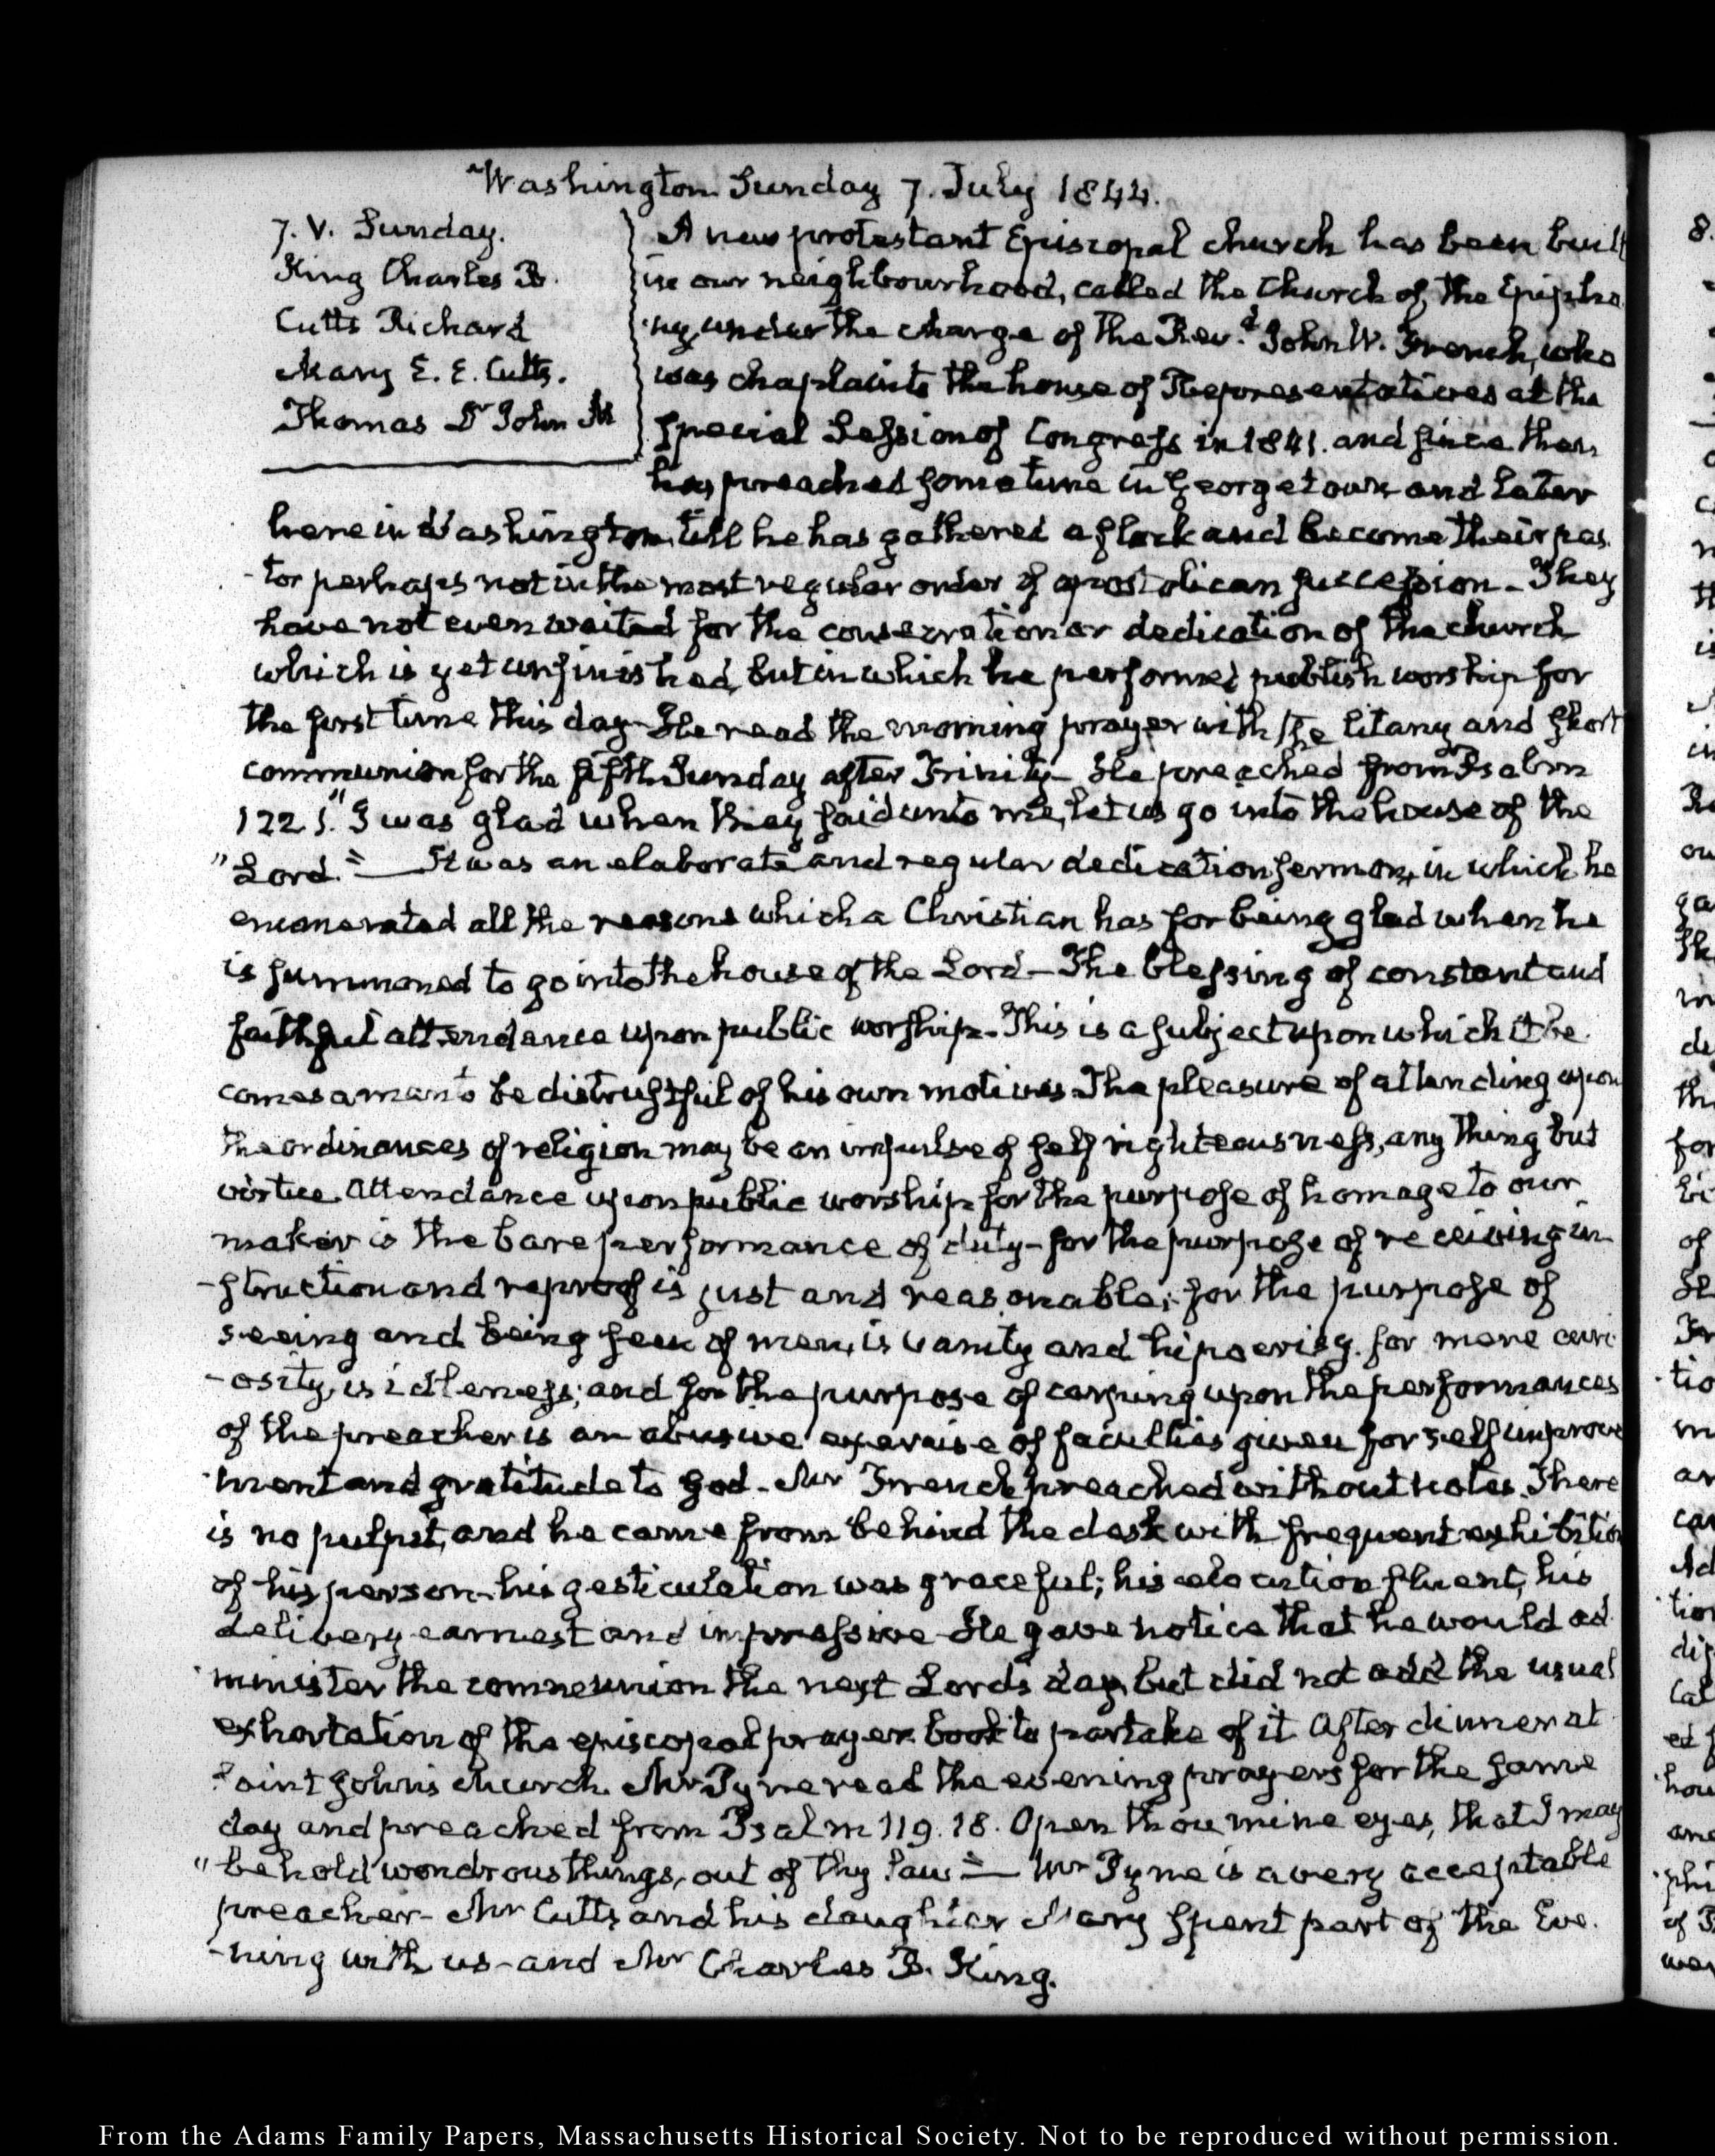 Washington Sunday 7. July 1844.
7. V. Sunday.
King Charles B.
Cutts Richard
Mary E. E. Cutts.
Thomas Dr John M
A new protestant Episcopal church has been built
in our neighbourhood, called the Church of the Epipha
-ny, under the charge of the Revd. John W. French, who
was chaplain to the house of Representatives at the
special Session of Congress in 1841. and since then
has preached sometime in Georgetown and later
here in Washington, till he has gathered a flock and become their pas.
-tor perhaps not in the most regular order of apostolican succession - They
have not even waited for the consecration or dedication of the church
which is yet unfinished, but in which he performed publish worship for
the first time this day - He read the morning prayer with the litany and short
communion for the fifth Sunday after Trinity - He preached from Psalm
122 1. "I was glad when they said unto me, let us go into the house of the
"Lord." — It was an elaborate and regular dedication sermon, in which he
enumerated all the reasons which a Christian has for being glad when he
is summoned to go into the house of the Lord - The blessing of constant and
faithful attendance upon public worship - This is a subject upon which it be.
comes a man to be distrustful of his own motives. The pleasure of attending upon
the ordinances of religion may be an impulse of self righteousness, any thing but
virtue. Attendance upon public worship for the purpose of homage to our
maker is the bare performance of duty - for the purpose of receiving in-
-struction and reproof is just and reasonable; for the purpose of
seeing and being seen of men, is vanity and hipocrisy. for mere curi
-osity, is idleness; and for the purpose of carping upon the performances
of the preacher is an abusive exercise of faculties given for self improve
-ment and gratitude to God - Mr French preached without notes. There
is no pulpit, and he came from behind the desk with frequent exhibition
of his person - his gesticulation was graceful; his elocution fluent, his
delivery earnest and impressive - He gave notice that he would ad
-minister the communion the next Lord's day, but did not add the usual
exhortation of the episcopal prayer book to partake of it. After dinner at
Saint John's church. Mr Tyne read the evening prayers for the same
day and preached from Psalm 119. 18. Open thou mine eyes, that I may
"behold wondrous things, out of thy law" — Mr Tyne is a very acceptable
preacher - Mr Cutts and his daughter Mary spent part of the Eve.
-ning with us - and Mr Charles B. King.
From the Adams Family Papers, Massachusetts Historical Society. Not to be reproduced without permission.